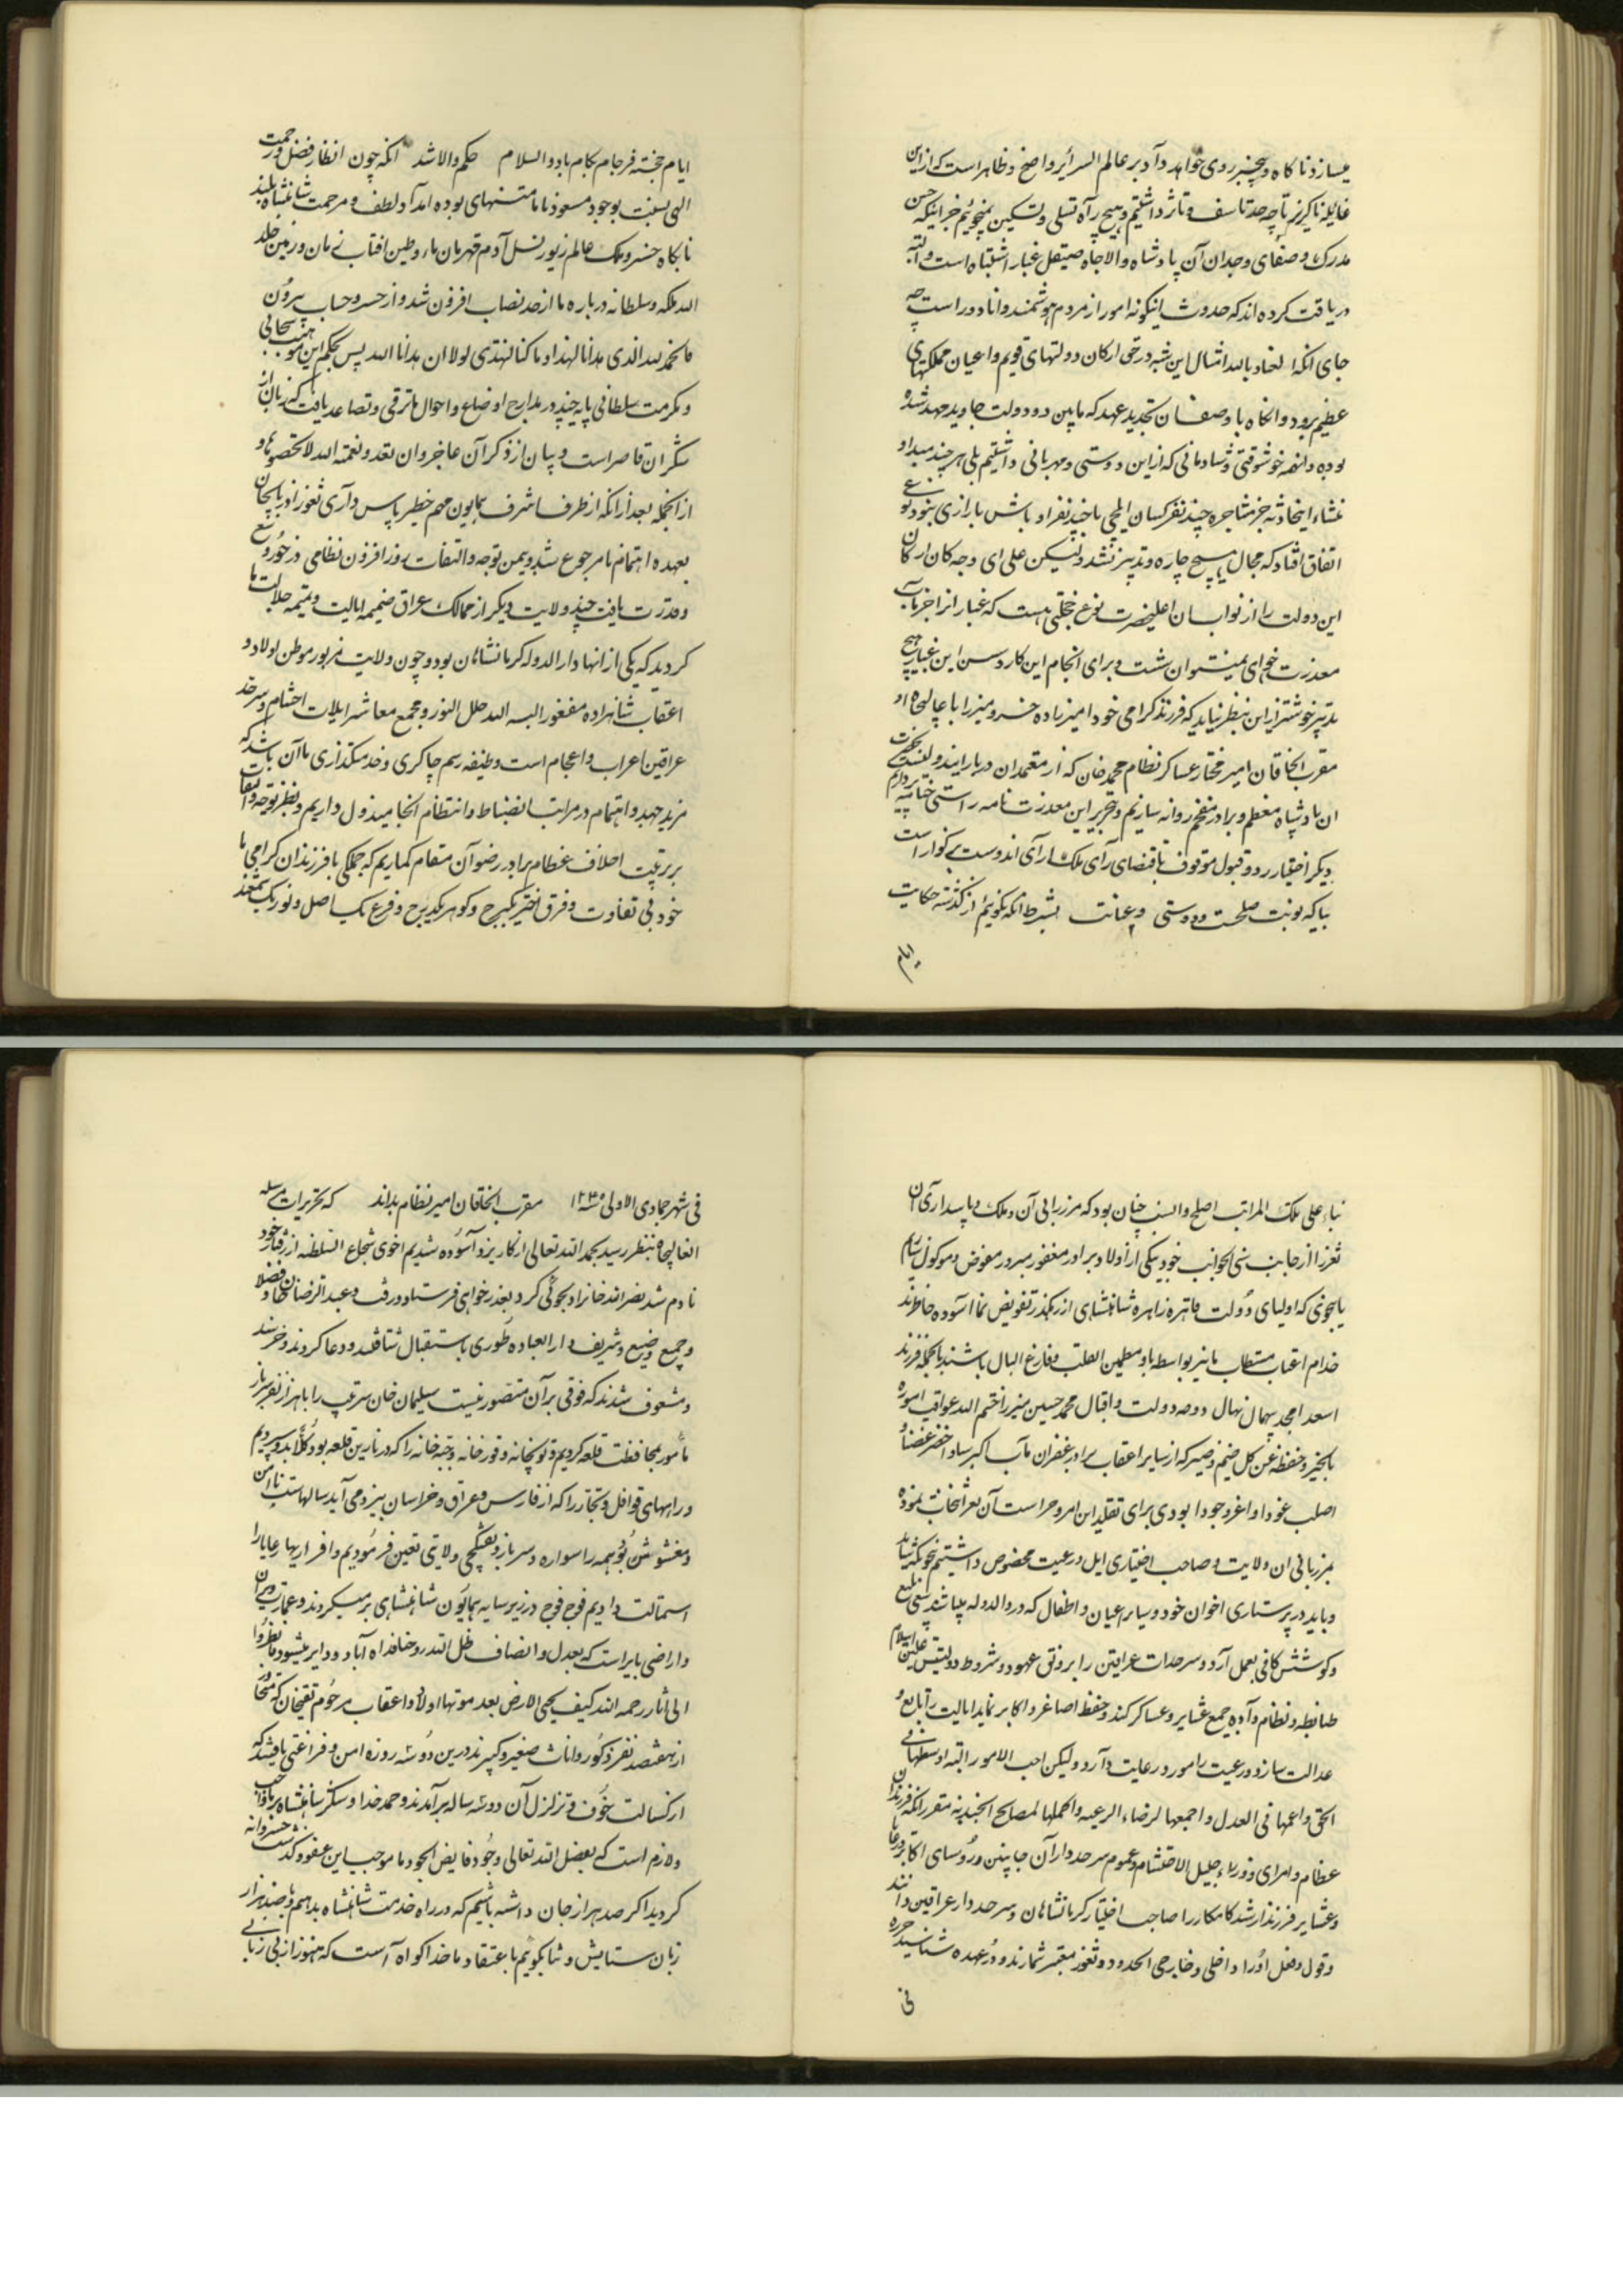 میسازد ناکاه و بیخبر روی خواهد داد بر عالم السرائر واضح و ظاهر است که ازین
غایله ناکزیر تا چه حد تاسف و تاثر داشتیم و بهیچ راه تسلی و تسکین نمیجوئیم جز اینکه حسن
مدرک و صفای وجدان آن پادشاه والاجاه صیقل غبار اشتباه است و البته
دریافت کرده اند که حدوث اینکونه امور از مردم هوشمند و دانا دور است چه
جای انکه العیاذ بالله امثال این شبه در حق ارکان دولتهای قویم و اعیان مملکتهای
عظیم برود و انکاه با وصف تجدید عهد که مابین دو دولت جاوید مهد شده
بوده و انهمه خوشوقتی و شادمانی که ازاین دوستی و مهربانی داشتیم بلی هر چند مبدا و
منشاء اینحادثه جز مشاجره چند نفر کسان ایلچی با چند نفر اوباش بازاری نبود بنوعی
اتفاق افتاد که مجال هیچ چاره و تدبیر نشد ولیکن علی ای وجه کان ارکان
این دولت را از نواب اعلیحضرت نوع خجلتی هست که غبار انرا جز بآب
معذرت خواهی نمیتوان شست و برای انجام این کار و شستن این غبار هیچ
تدبیر خوشتر ازاین بنظر نیاید که فرزند کرامی خود امیرزاده خسرو میرزا با عالیجاه
مقرب الخاقان امیر مختار عساکر نظام محمد خان که از معتمدان دربار ایندولتست بحضرت
ان پادشاه معظم و برادر مفخم روانه سازیم و بتحریر این معذرت نامه راستی ختامه پردازیم
دیکر اختیار رد و قبول موقوف باقتضای رای ملک آرای اندوست بزرکوار است
بیا که نوبت صلحست و دوستی و عنایت بشرط انکه نکوئیم از کذشته حکایت
ایام
ایام خجسته فرجام بکام باد والسلام حکم والا شد انکه چون انظار فضل و رحمت
الهی بسبب بوجود مسعود ما نامتنهای بوده امداد لطف و مرحمت شاهنشاه بلند
بارکاه خسرو ملک عالم زیور نسل آدم قهرمان ماء و طین افتاب زمان و زمین خلد
الله ملکه و سلطانه درباره ما از حد نصاب افزون شد و از حسر و حساب بیرون
فالحمد لله الذی هدانا لهذا و ما کنا لنهتدی لولا ان هدانا الله پس بحکم این موهبت سبحانی
و مکرمت سلطانی پایه چند در مدارج اوضاع و احوال ما ترقی و تصاعد یافت که زبان از
شکر ان قاصر است و بیان از ذکر آن عاجز و ان تعدوا نعمة الله لا تحصوها و
از انجمله بعد از انکه از طرف اشرف همایون مهم خطیر پاس داری ثغور اذربایجان
بعهده اهتمام ما مرجوع شد و بیمن توجه و التفات روز افزون نظامی در خور وسع
و قدرت یافت چند ولایت دیکر از ممالک عراق ضمیمه ایالت و تتیمه جلالت ما
کردید که یکی از انها دار الدوله کرمانشاهان بود و چون ولایت مزبور موطن اولاد و
اعقاب شاهزاده مغفور البسه الله حلل النور و مجمع معاشر ایلات احشام و سرحد
عراقین اعراب و اعجام است وظیفه رسم چاکری و خدمتکذاری ما آن باشد که
مزید جهد و اهتمام در مراتب انضباط و انتظام انجا مبذول داریم و نظر توجه و التفات
بر تربیت اخلاف عظام برادر رضوان مقام کماریم که جملکی با فرزندان کرامی ما
خود بی تفاوت و فرق اختر یک برج و کوهر یک درج و فرع یک اصل و نور یک شمعند
بناء علی تلک المراتب اصلح و انسب چنان بود که مرزبانی آن ملک و پاسداری آن
ثغر را از جانب سنی الجوانب خود بیکی از اولاد برادر مغفور مبرور مفوض و موکول داریم
تا بنحوی که اولیای دولت قاهره زاهره شاهنشاهی از رهکذر تفویض بما آسوده خاطرند
خدام اعتاب مستطاب ما نیز بواسطه او مطمئن القلب و فارغ البال باشند بالجمله فرزند
اسعد امجد بیهمال نهال دوحه دولت و اقبال محمد حسین میرزا ختم الله عواقب اموره
بالخیر و حفظه عن کل ضیم و ضیر که از سایر اعقاب برادر غفران مآب اکبر سنا و اخضر غصنا و
اصلب عودا و اغر وجودا بودی برای تقلید این امر و حراست آن ثغر انتخاب نموده
بمرزبانی ان ولایت و صاحب اختیاری ایل و رعیت مخصوص داشتیم
و باید در پرستاری اخوان خود و سایر اعیان و اطفال که در دار الدوله میباشند سعی بلیغ
و کوشش کافی بعمل آرد و سرحدات عراقین را بر وفق عهود و شروط دولتین علیتین اسلام
ضابطه و نظام داده جمع عشایر و عساکر کند و حفظ اصاغر و اکابر نماید ایالت را تابع و
عدالت سازد و رعیت را مورد رعایت دارد ولیکن احب الامور الیه اوسطها فی
الحق و اعمها فی العدل و اجمعها لرضاء الرعیه و اکملها لمصالح الجندیه مقرر انکه فرزندان
عظام و امرای و وزراء جلیل الاحتشام و عموم سرحدداران جانبین و روسای اکابر و رعایا
و عشایر فرزند ارشد کامکار را صاحب اختیار کرمانشاهان و سرحددار عراقین دانند
و قول و فعل او را در داخلی و خارجی الحدود و ثغور معتبر شمارند و در عهده شناسند حرره
فی
فی شهر جمادی الاولی سنه ۱۲۴۵ مقرب الخاقان امیر نظام بداند که تحریرات مرسله
انعالیجاه بنظر رسید بحمد الله تعالی از کار یزد آسوده شدیم اخوی شجاع السلطنه از رفتار خود
نادم شد نصرالله خانرا دلجوئی کرد بعذر خواهی فرستاد و رفت و عبد الرضا خان
و جمیع وضیع و شریف دار العباده طوری باستقبال شتافتند و دعا کردند و خرسند
و مشعوف شدند که فوقی بر آن متصور نیست سلیمان خان سرتیپ را با هزار نفر سرباز
مأمور بمحافظت قلعه کردیم و توپخانه و قورخانه و جبه خانه را که در نارین قلعه بود کلا بدو سپردیم
و راههای قوافل و تجار را که از فارس و عراق و خراسان بیزد می آید سالهاست ناامن
و مغشوش بود همه را سواره و سرباز و تفنکچی ولایتی تعین فرمودیم و افراریها رعایا را
استمالت دادیم فوج فوج در زیر سایه همایون شاهنشاهی بر میکردند و عمارت ویران
و اراضی بایر است که بعدل و انصاف ظل الله روحنا فداه آباد و دایر میشود فانظروا
الی اثار رحمه الله کیف یحیی الارض بعد موتها اولاد و اعقاب مرحوم تقیخان که متجاوز
از هفتصد نفر ذکور و اناث صغیر و کبیرند درین دو سه روزه امن و فراغتی یافتند که
از کسالت خوف و تزلزل آن دو سه ساله بر آمدند و حمد خدا و شکر شاهنشاه بر ما واجب
و لازم است که بفضل الله تعالی وجود فایض الجود ما موجب این عفو و کذشت خسروانه
کردید اکر صد هزار جان داشته باشیم که در راه خدمت شاهنشاه بدهیم و صد هزار
زبان ستایش و ثنا بکوئیم باعتقاد ما خدا کواه است که هنوز از بی زبانی